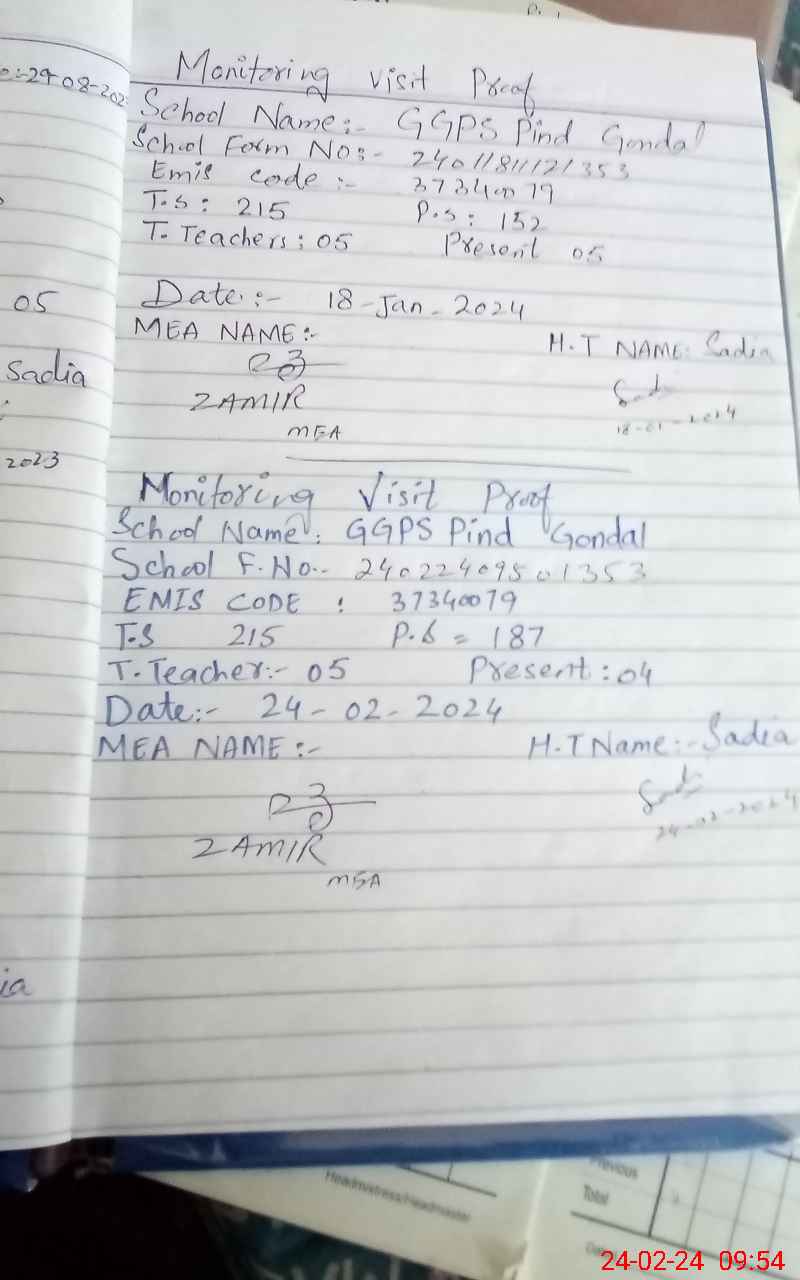 29-08-202
05
Sadia
2023
ia
Monitoring visit Proof
School Name:- GGPS Pind Gondal
School Form No:- 24011811121353
Emis code :- 37340079
T.S: 215 P.S: 152
T. Teachers: 05 Present 05
Date:- 18-Jan-2024
MEA NAME:- H.T NAME: Sadia
ZAMIR
MEA
18-01-2024
Monitoring Visit Proof
School Name: GGPS Pind Gondal
School F.No.. 24022409501353
EMIS CODE : 37340079
T.S 215 P.S = 187
T. Teacher:- 05 Present: 04
Date:- 24-02-2024
MEA NAME:- H.T Name:- Sadia
24-02-2024
ZAMIR
MEA
Headmistress/Headmaster
Previous
Total
24-02-24 09:54